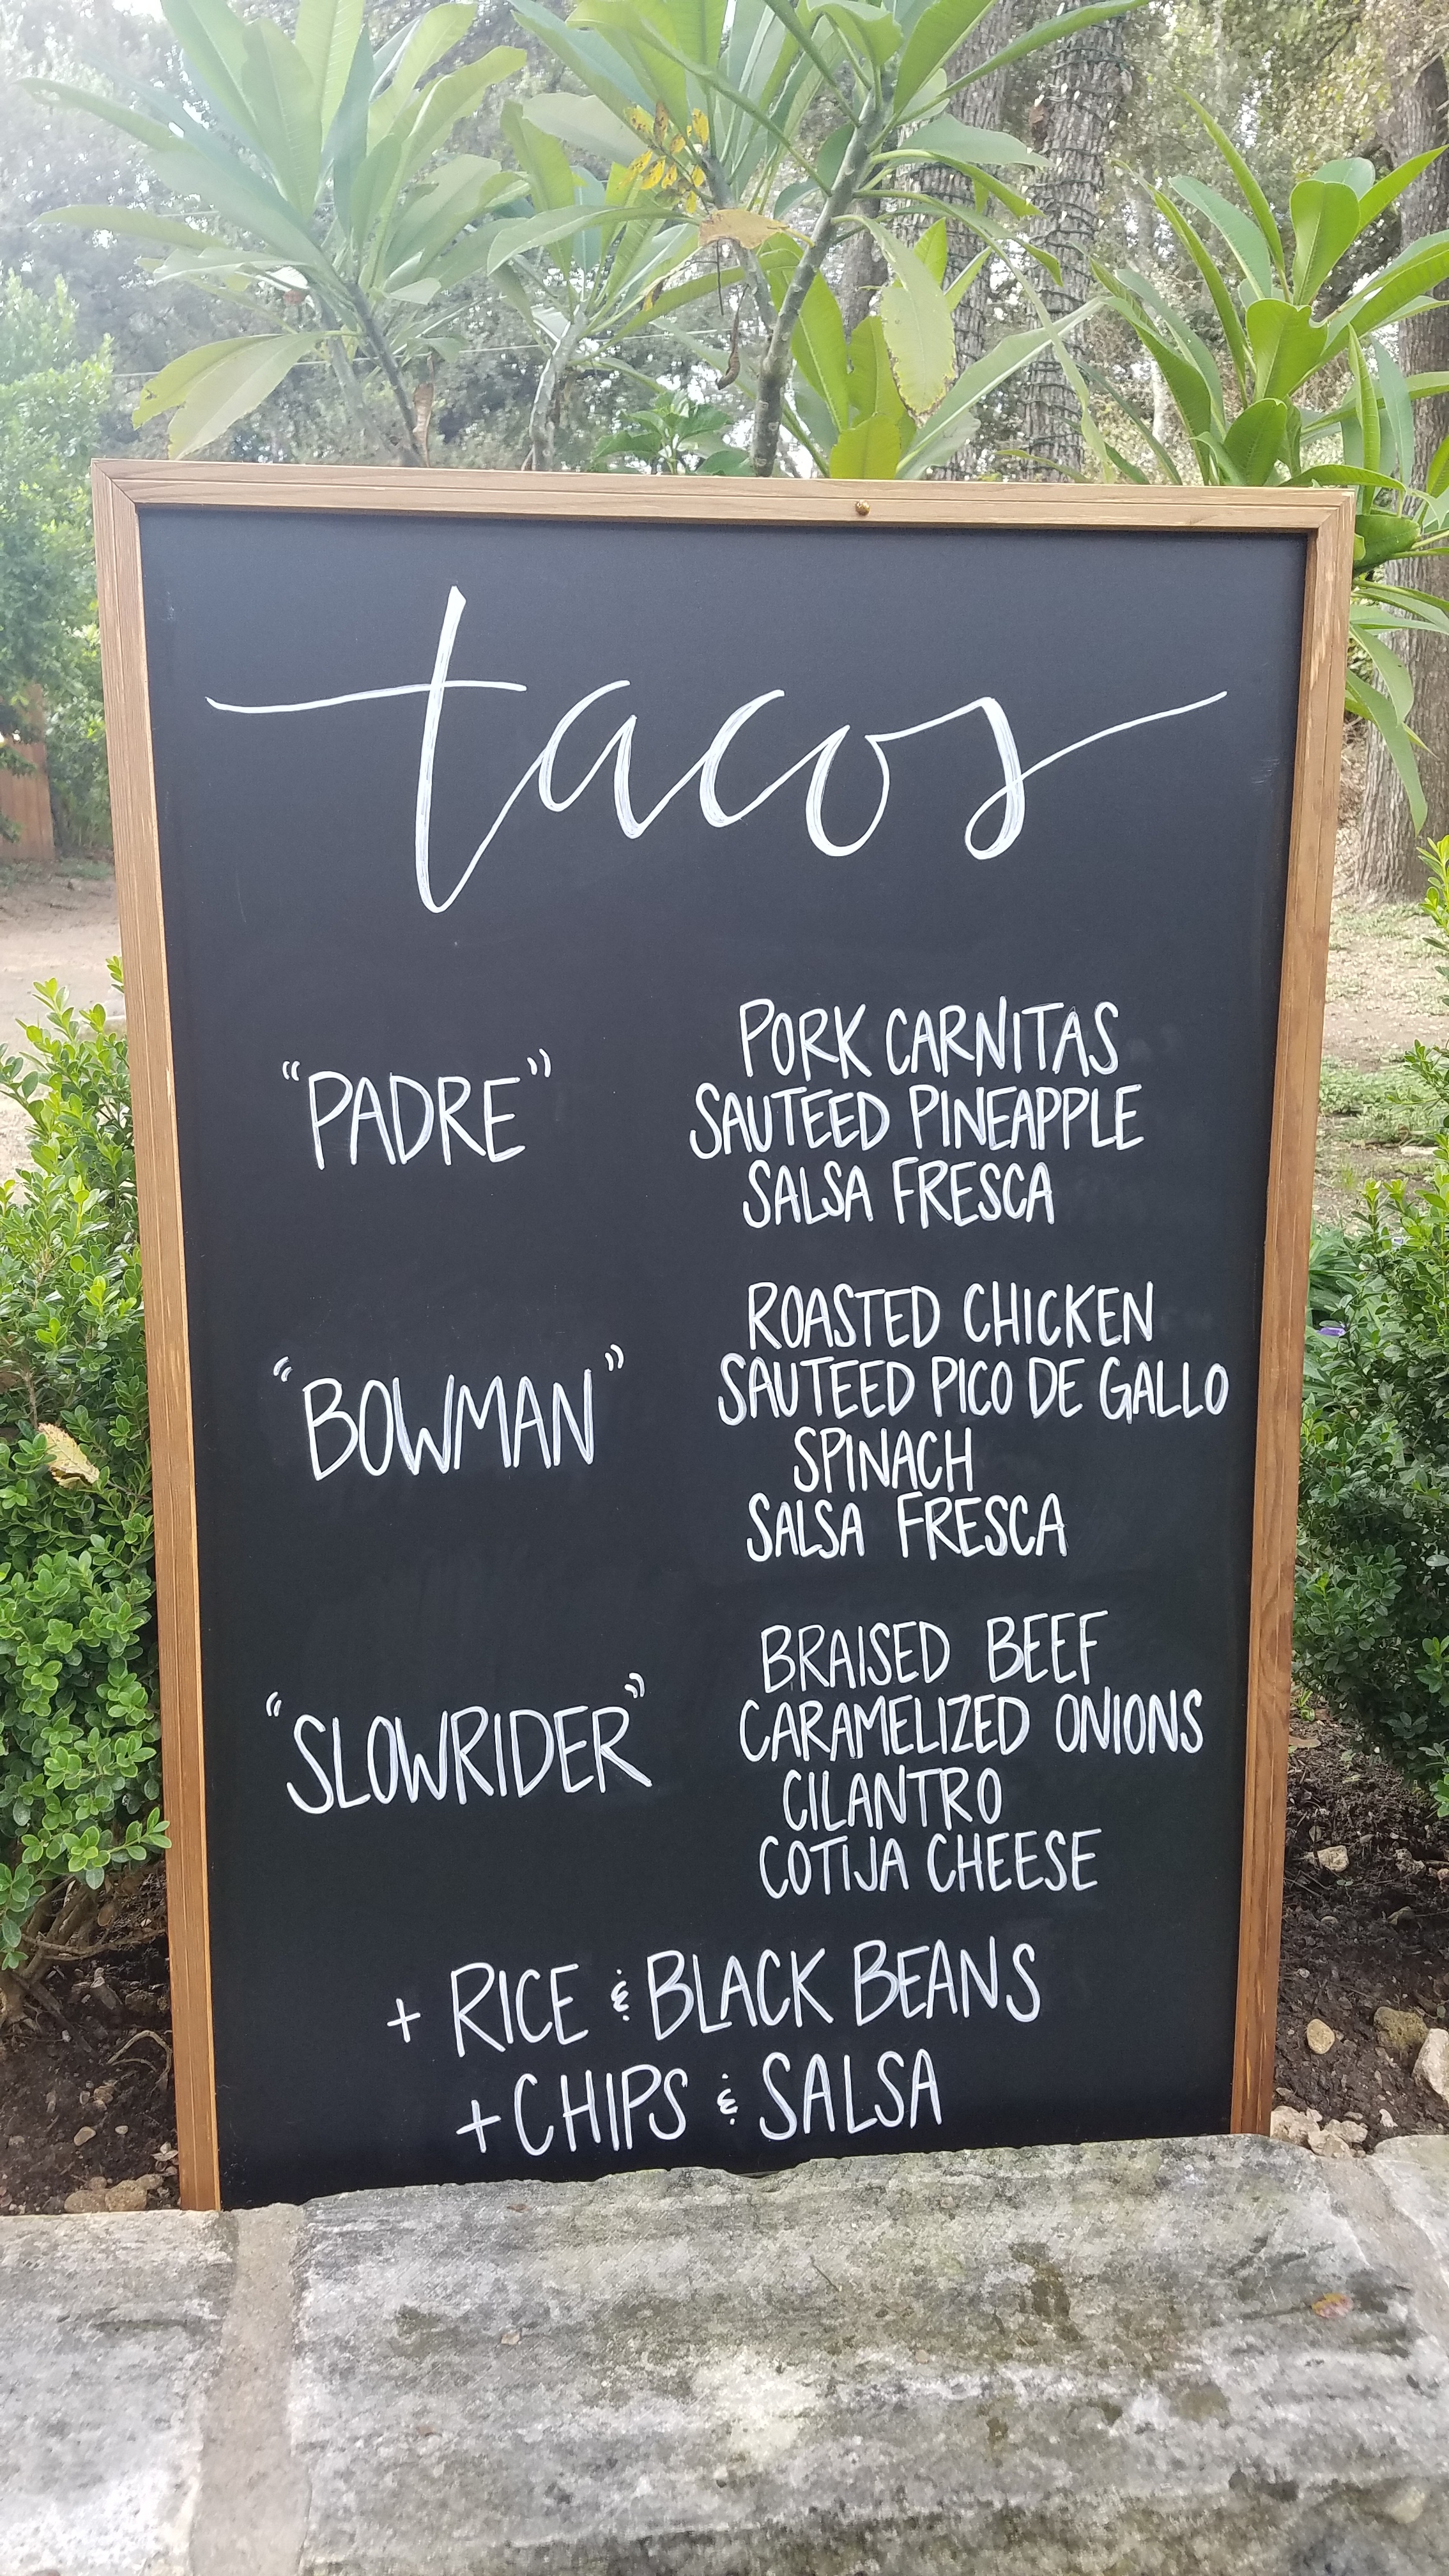 tacos
"PADRE"
PORK CARNITAS
SAUTEED PINEAPPLE
SALSA FRESCA
"BOWMAN"
ROASTED CHICKEN
SAUTEED PICO DE GALLO
SPINACH
SALSA FRESCA
"SLOWRIDER"
BRAISED BEEF
CARAMELIZED ONIONS
CILANTRO
COTIJA CHEESE
+ RICE & BLACK BEANS
+ CHIPS & SALSA